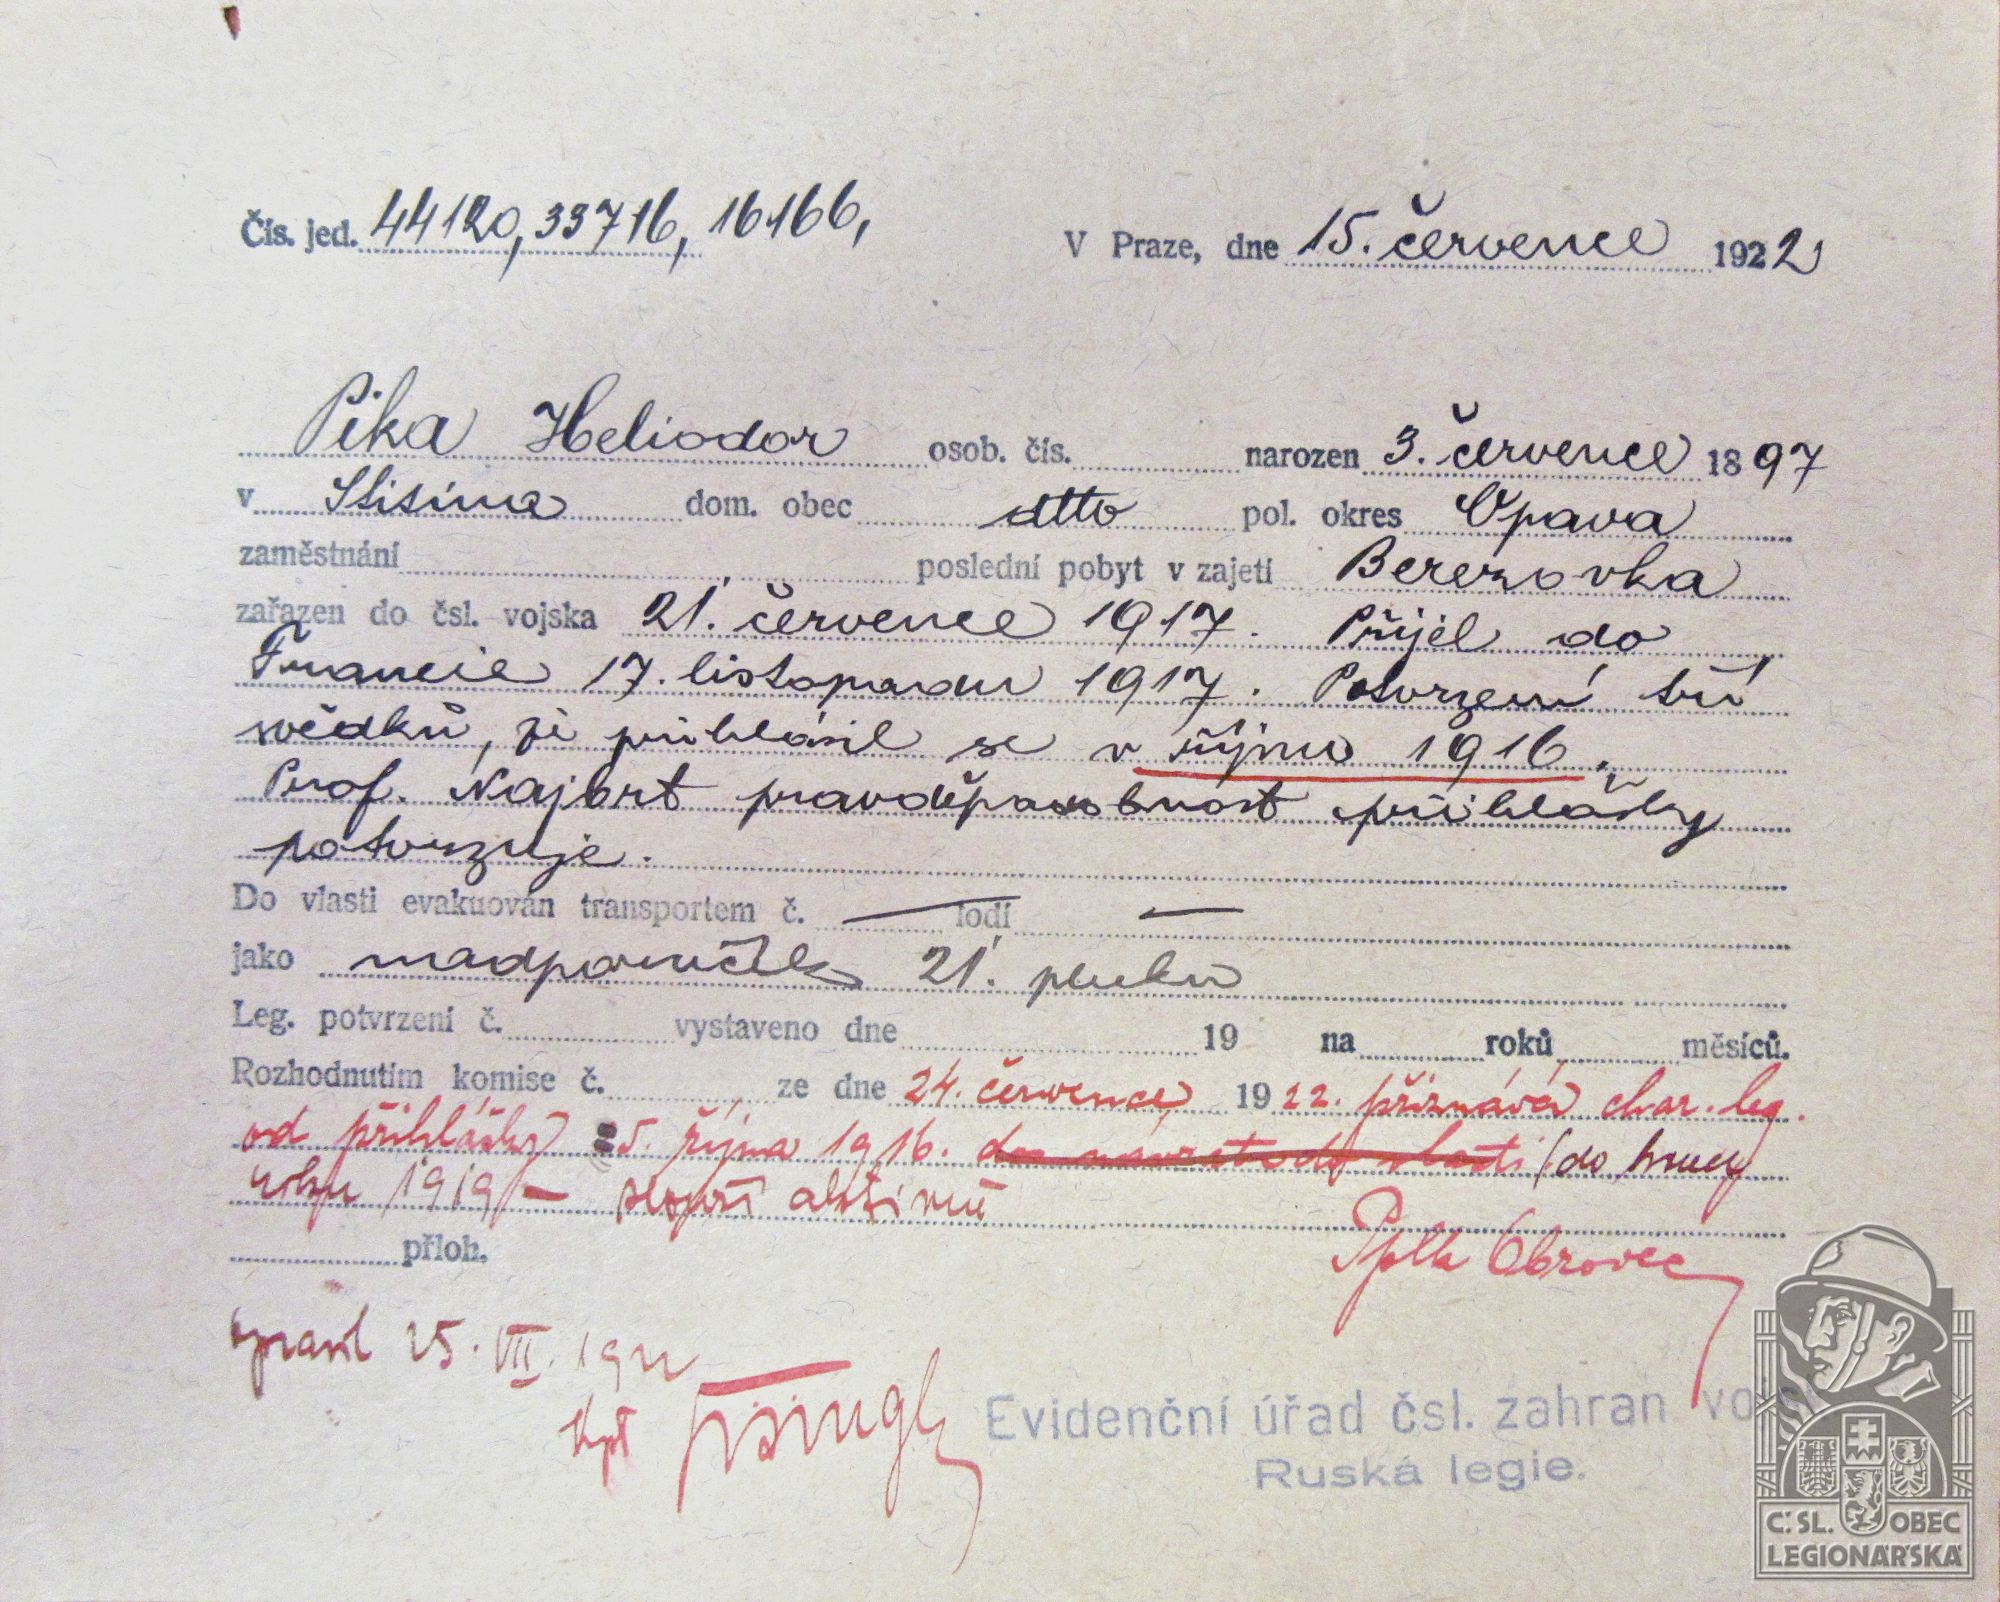 Čís. jed. 44120, 33716, 16166,
V Praze, dne 15. července 1922
Pika Heliodor osob. čís. narozen 3. července 1897
v Štitina dom. obec dtto pol. okres Opava
zaměstnání poslední pobyt v zajetí Berezovka
zařazen do čsl. vojska 21. července 1917. Přijel do
Francie 17. listopadu 1917. Potvrzení tří
svědků, že přihlásil se v říjnu 1916.
Prof. Najbrt pravděpodobnost přihlášky
potvrzuje.
Do vlasti evakuován transportem č. — lodí —
jako nadporučík 21. pluku
Leg. potvrzení č. vystaveno dne 19 na roků měsíců.
Rozhodnutím komise č. ze dne 24. července 1922. přiznává char. leg.
od přihlášky 5. října 1916. do návratu do vlasti (do konce
roku 1919 —
příloh.
Pplk Obrovec
25. VII. 1922
kpt
Evidenční úřad čsl. zahran voj
Ruská legie.
Č. SL. OBEC
LEGIONÁŘSKÁ